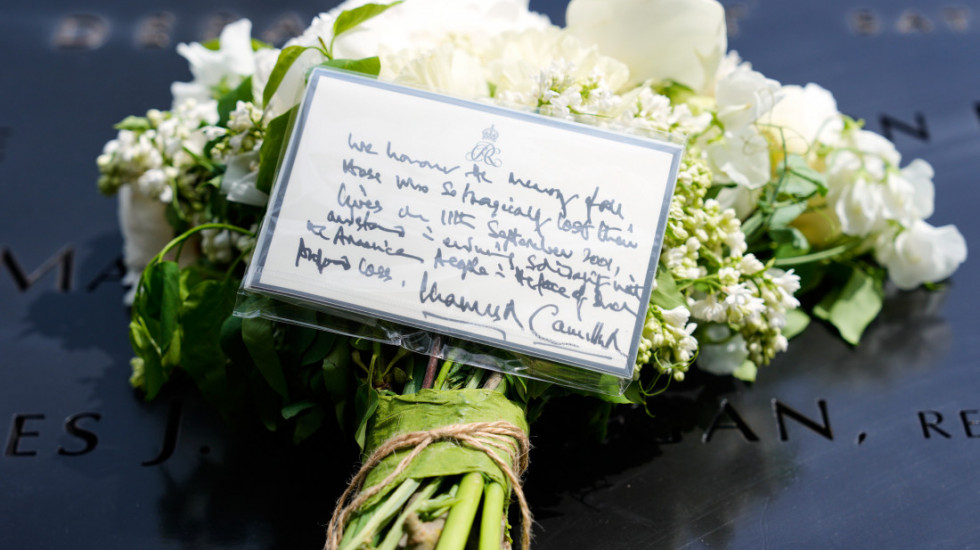 N
We honour the memory of all
those who so tragically lost their
lives on 11th September 2001,
and stand in enduring solidarity with
the American people in of their
profound loss.
Charles R Camilla R
MA
ES J. AN, RE